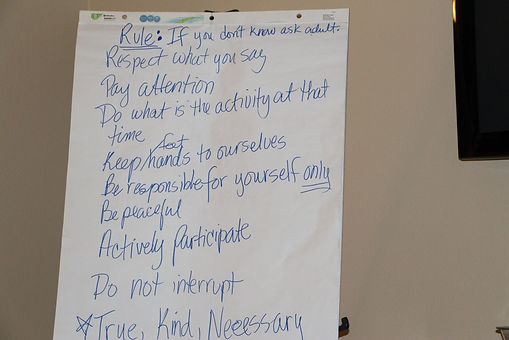 Rule: If you don't know ask adult.
Respect what you say
Pay attention
Do what is the activity at that
time
feet
Keep/hands to ourselves
Be responsible for yourself only
Be peaceful
Actively participate
Do not interrupt
☆True, Kind, Neeessary